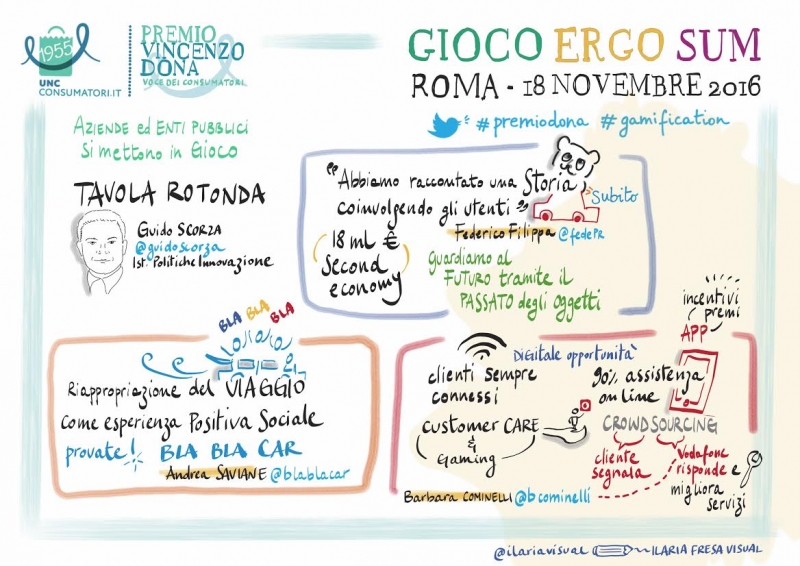 1955
UNC
CONSUMATORI.IT
PREMIO
VINCENZO
DONA
VOCE DEI CONSUMATORI
GIOCO ERGO SUM
ROMA - 18 NOVEMBRE 2016
#premiodona #gamification
AZIENDE ed ENTI PUBBLICI
Si mettono in GIOCO
TAVOLA ROTONDA
Guido SCORZA
@guidoscorza
Ist. Politiche Innovazione
"Abbiamo raccontato una Storia
coinvolgendo gli utenti"
Subito
Federico Filippa @fedePR
18 ml €
Second
economy
guardiamo al
FUTURO tramite il
PASSATO degli oggetti
BLA BLA BLA
Riappropriazione del VIAGGIO
come esperienza Positiva Sociale
provate! BLA BLA CAR
Andrea SAVIANE @blablacar
incentivi
premi
APP
Digitale opportunità
clienti sempre
connessi
90% assistenza
on line
customer CARE
&
Gaming
CROWDSOURCING
cliente
segnala
Vodafone
risponde e
migliora
servizi
Barbara COMINELLI @bcominelli
@ilariavisual ILARIA FRESA VISUAL